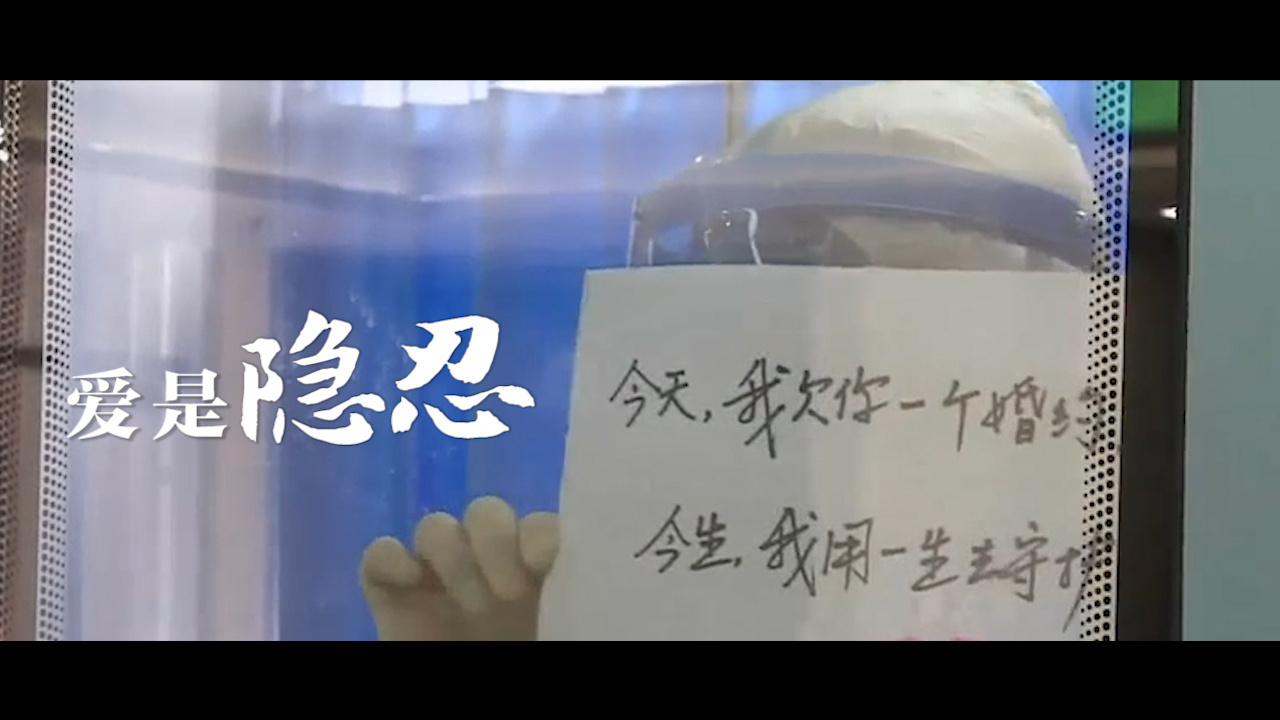 爱是隐忍
今天，我欠你一个婚
今生，我用一生去守护